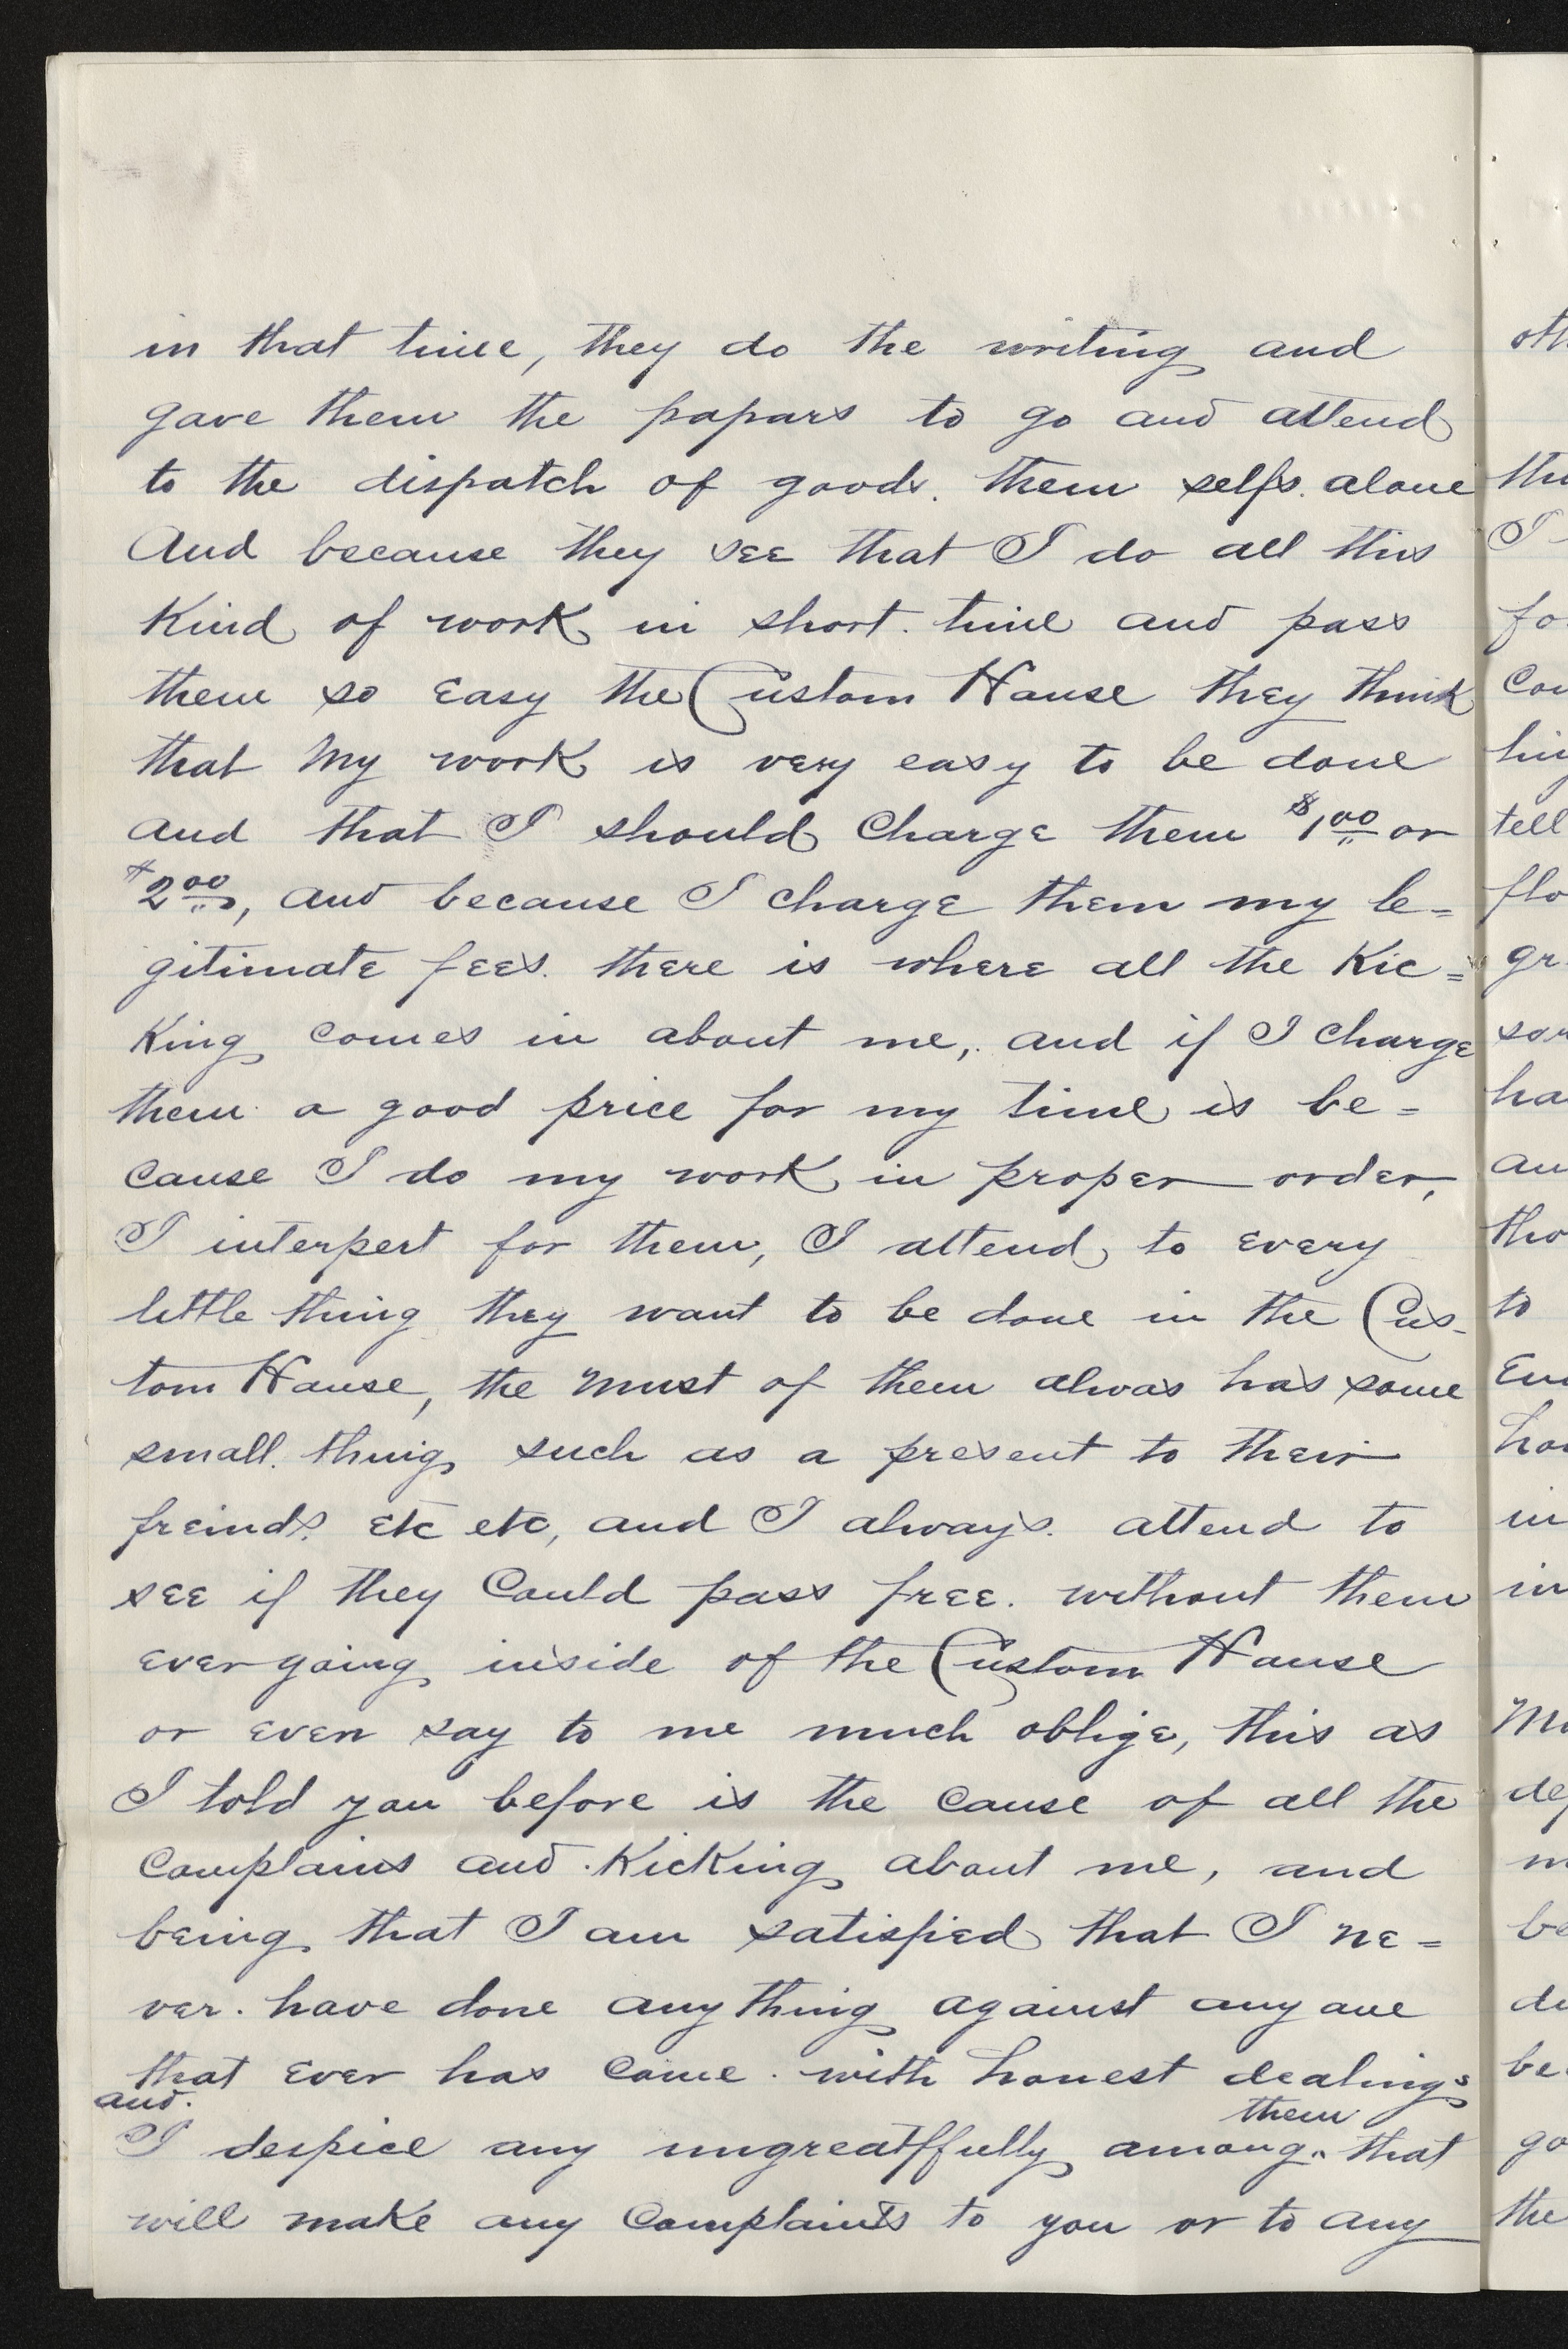 in that time, they do the writing and
gave them the papars to go and attend
to the dispatch of goods. them selfs. alone
And because they see that I do all this
Kind of work in short. time and pass
them so easy the Custom House they think
that My work is very easy to be done
and that I should Charge them $1.00 or
$2.00, and because I charge them my le=
gitimate fees. there is where all the Kic=
King comes in about me, and if I charge
them a good price for my time is be=
cause I do my work in proper order,
I interpert for them, I attend to every
little thing they want to be done in the Cus-
tom House, the must of them alwas has some
small. thing such as a present to their
freinds. etc etc, and I always. attend to
see if they Could pass free. without them
ever going inside of the Custom House
or even say to me much oblige, this as
I told you before is the cause of all the
Complains and Kicking about me, and
being that I am satisfied that I ne=
ver. have done anything against any one
that ever has Come. with honest dealings
and.
them
I despice any ungreatffully among ^ that
will make any Complaints to you or to any
oth
thi
I
fo
Cou
him
tell
flo
gr
sor
ha
au
tho
to
Eu
hou
in
in
Mu
dep
m
be
du
be
go
the